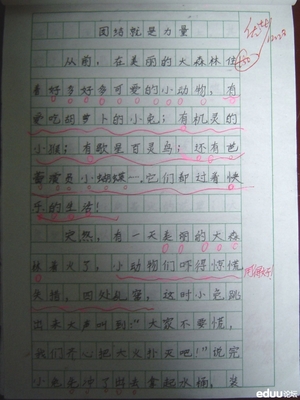 团结就是力量
从前，在美丽的大森林住
着好多好多可爱的小动物，有
爱吃胡萝卜的小兔；有机灵的
小猴；有歌星百灵鸟；还有芭
蕾演员小蝴蝶…它们都过着快
乐的生活！
突然，有一天美丽的大森
林着火了，小动物们吓得惊慌
失措，四处乱窜，这时小兔跳
出来大声叫到：“大家不要慌，
我们齐心把大火扑灭吧！”说完
小兔冲了出去拿起水桶，装
eduu论坛